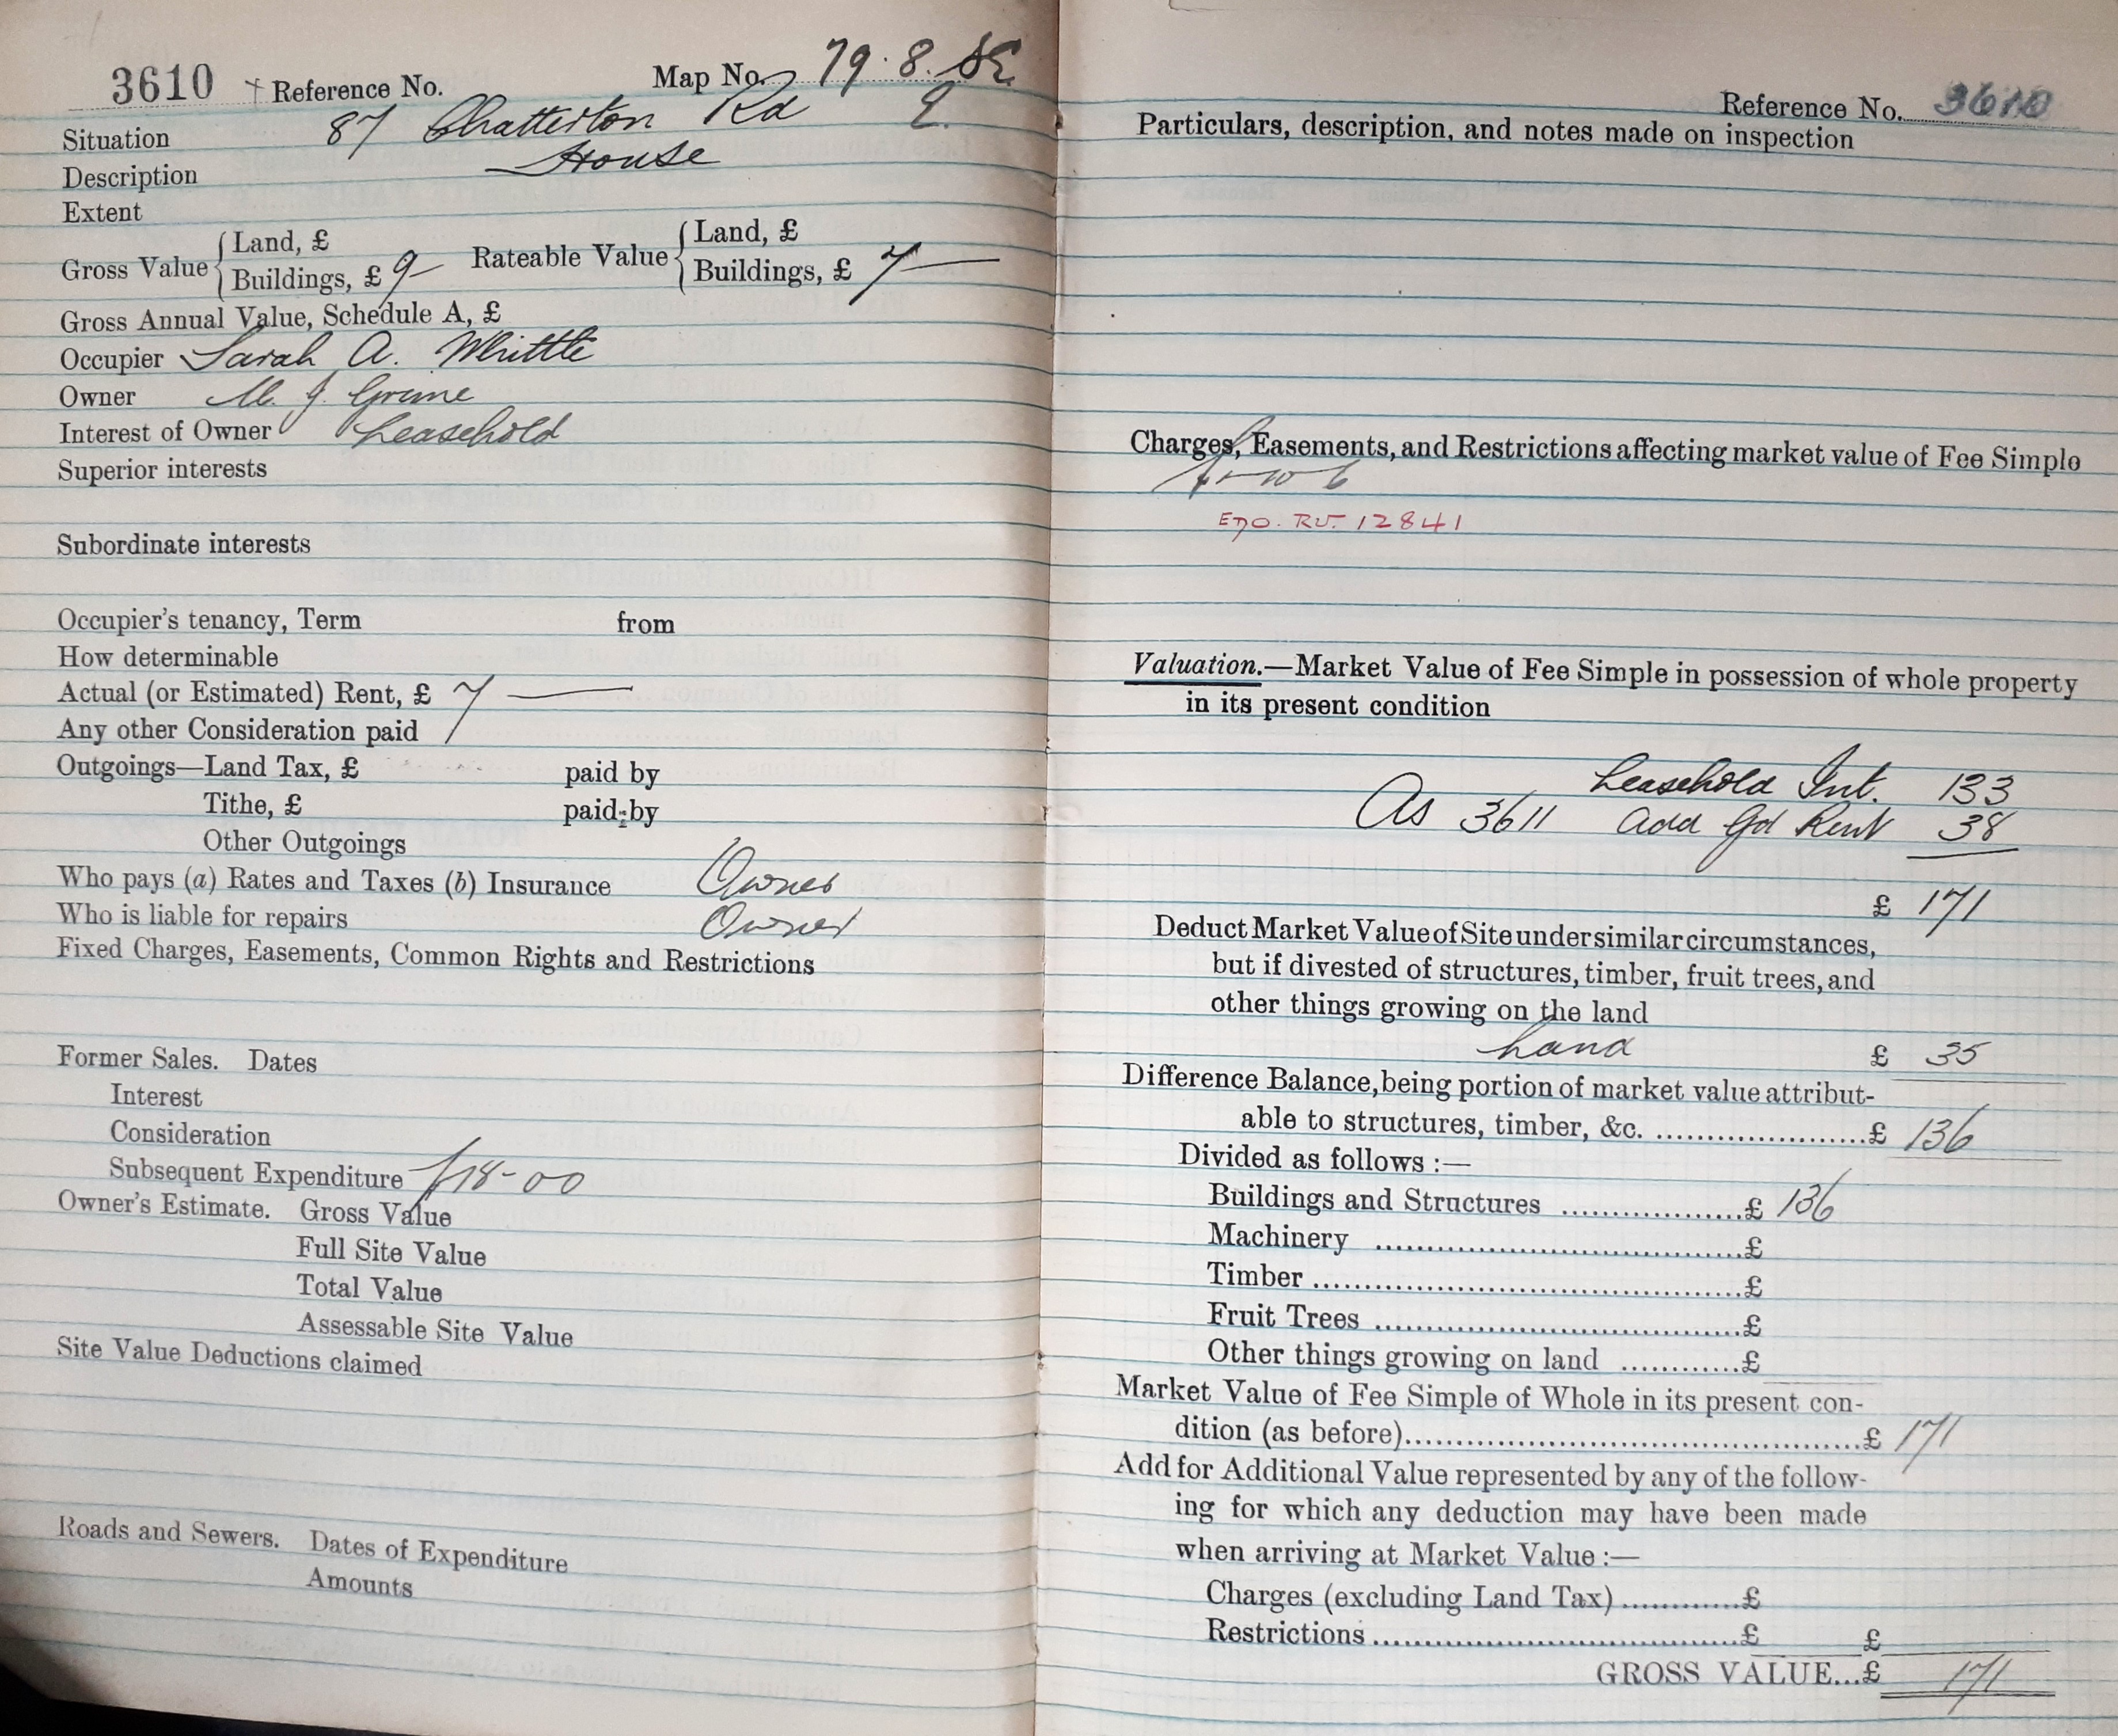 3610 Reference No. Map No. 79.8.SE.
Situation 87 Chatterton Rd
Description House
Extent
Gross Value { Land, £
Buildings, £ 9— Rateable Value { Land, £
Buildings, £ 7—
Gross Annual Value, Schedule A, £
Occupier Sarah A. Whittle
Owner M. J. Grime
Interest of Owner Leasehold
Superior interests
Subordinate interests
Occupier's tenancy, Term from
How determinable
Actual (or Estimated) Rent, £ 7—
Any other Consideration paid
Outgoings—Land Tax, £ paid by
Tithe, £ paid by
Other Outgoings
Who pays (a) Rates and Taxes (b) Insurance Owner
Who is liable for repairs Owner
Fixed Charges, Easements, Common Rights and Restrictions
Former Sales. Dates
Interest
Consideration
Subsequent Expenditure £18-00
Owner's Estimate. Gross Value
Full Site Value
Total Value
Assessable Site Value
Site Value Deductions claimed
Roads and Sewers. Dates of Expenditure
Amounts
Reference No. 3610
Particulars, description, and notes made on inspection
Charges, Easements, and Restrictions affecting market value of Fee Simple
EDO. RV. 12841
Valuation.—Market Value of Fee Simple in possession of whole property
in its present condition
Leasehold Int. 133
As 3611 add Gd Rent 38
£ 171
Deduct Market Value of Site under similar circumstances,
but if divested of structures, timber, fruit trees, and
other things growing on the land
Land £ 35
Difference Balance, being portion of market value attribut-
able to structures, timber, &c. ......................£ 136
Divided as follows :—
Buildings and Structures ...................£ 136
Machinery ......................................£
Timber .............................................£
Fruit Trees ......................................£
Other things growing on land ............£
Market Value of Fee Simple of Whole in its present con-
dition (as before)................................................£ 171
Add for Additional Value represented by any of the follow-
ing for which any deduction may have been made
when arriving at Market Value :—
Charges (excluding Land Tax) .............£
Restrictions .......................................£ £
GROSS VALUE...£ 171